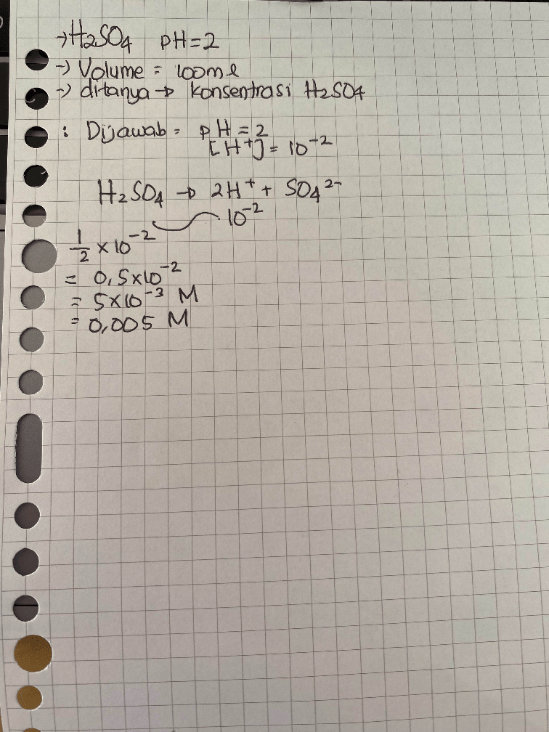 → H₂SO₄ pH = 2
→ Volume = 100 ml
→ ditanya → konsentrasi H₂SO₄
: Dijawab = pH = 2
[H⁺] = 10⁻²
H₂SO₄ → 2H⁺ + SO₄²⁻
10⁻²
1/2 × 10⁻²
= 0,5 × 10⁻²
= 5 × 10⁻³ M
= 0,005 M